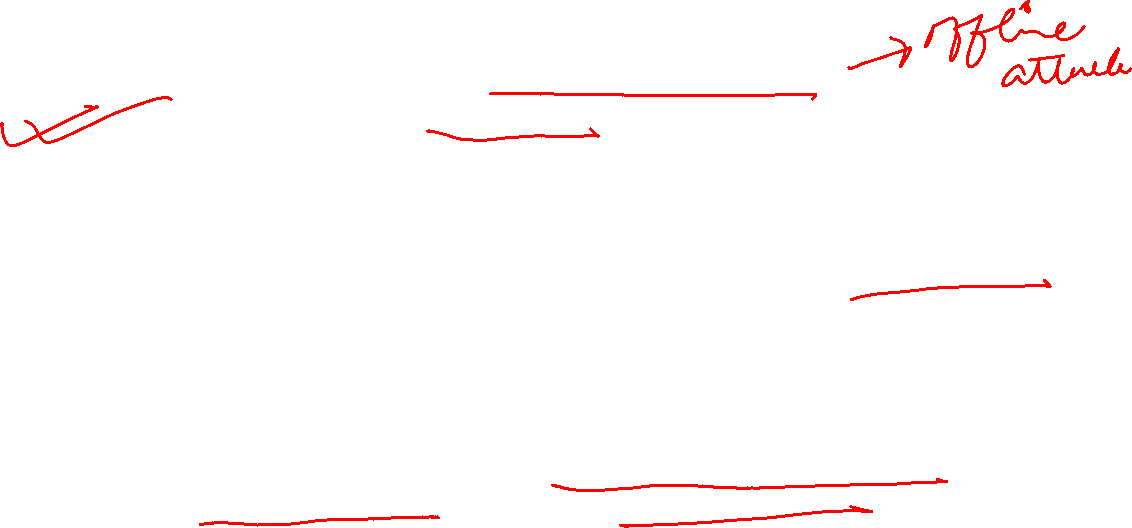 offline
attack